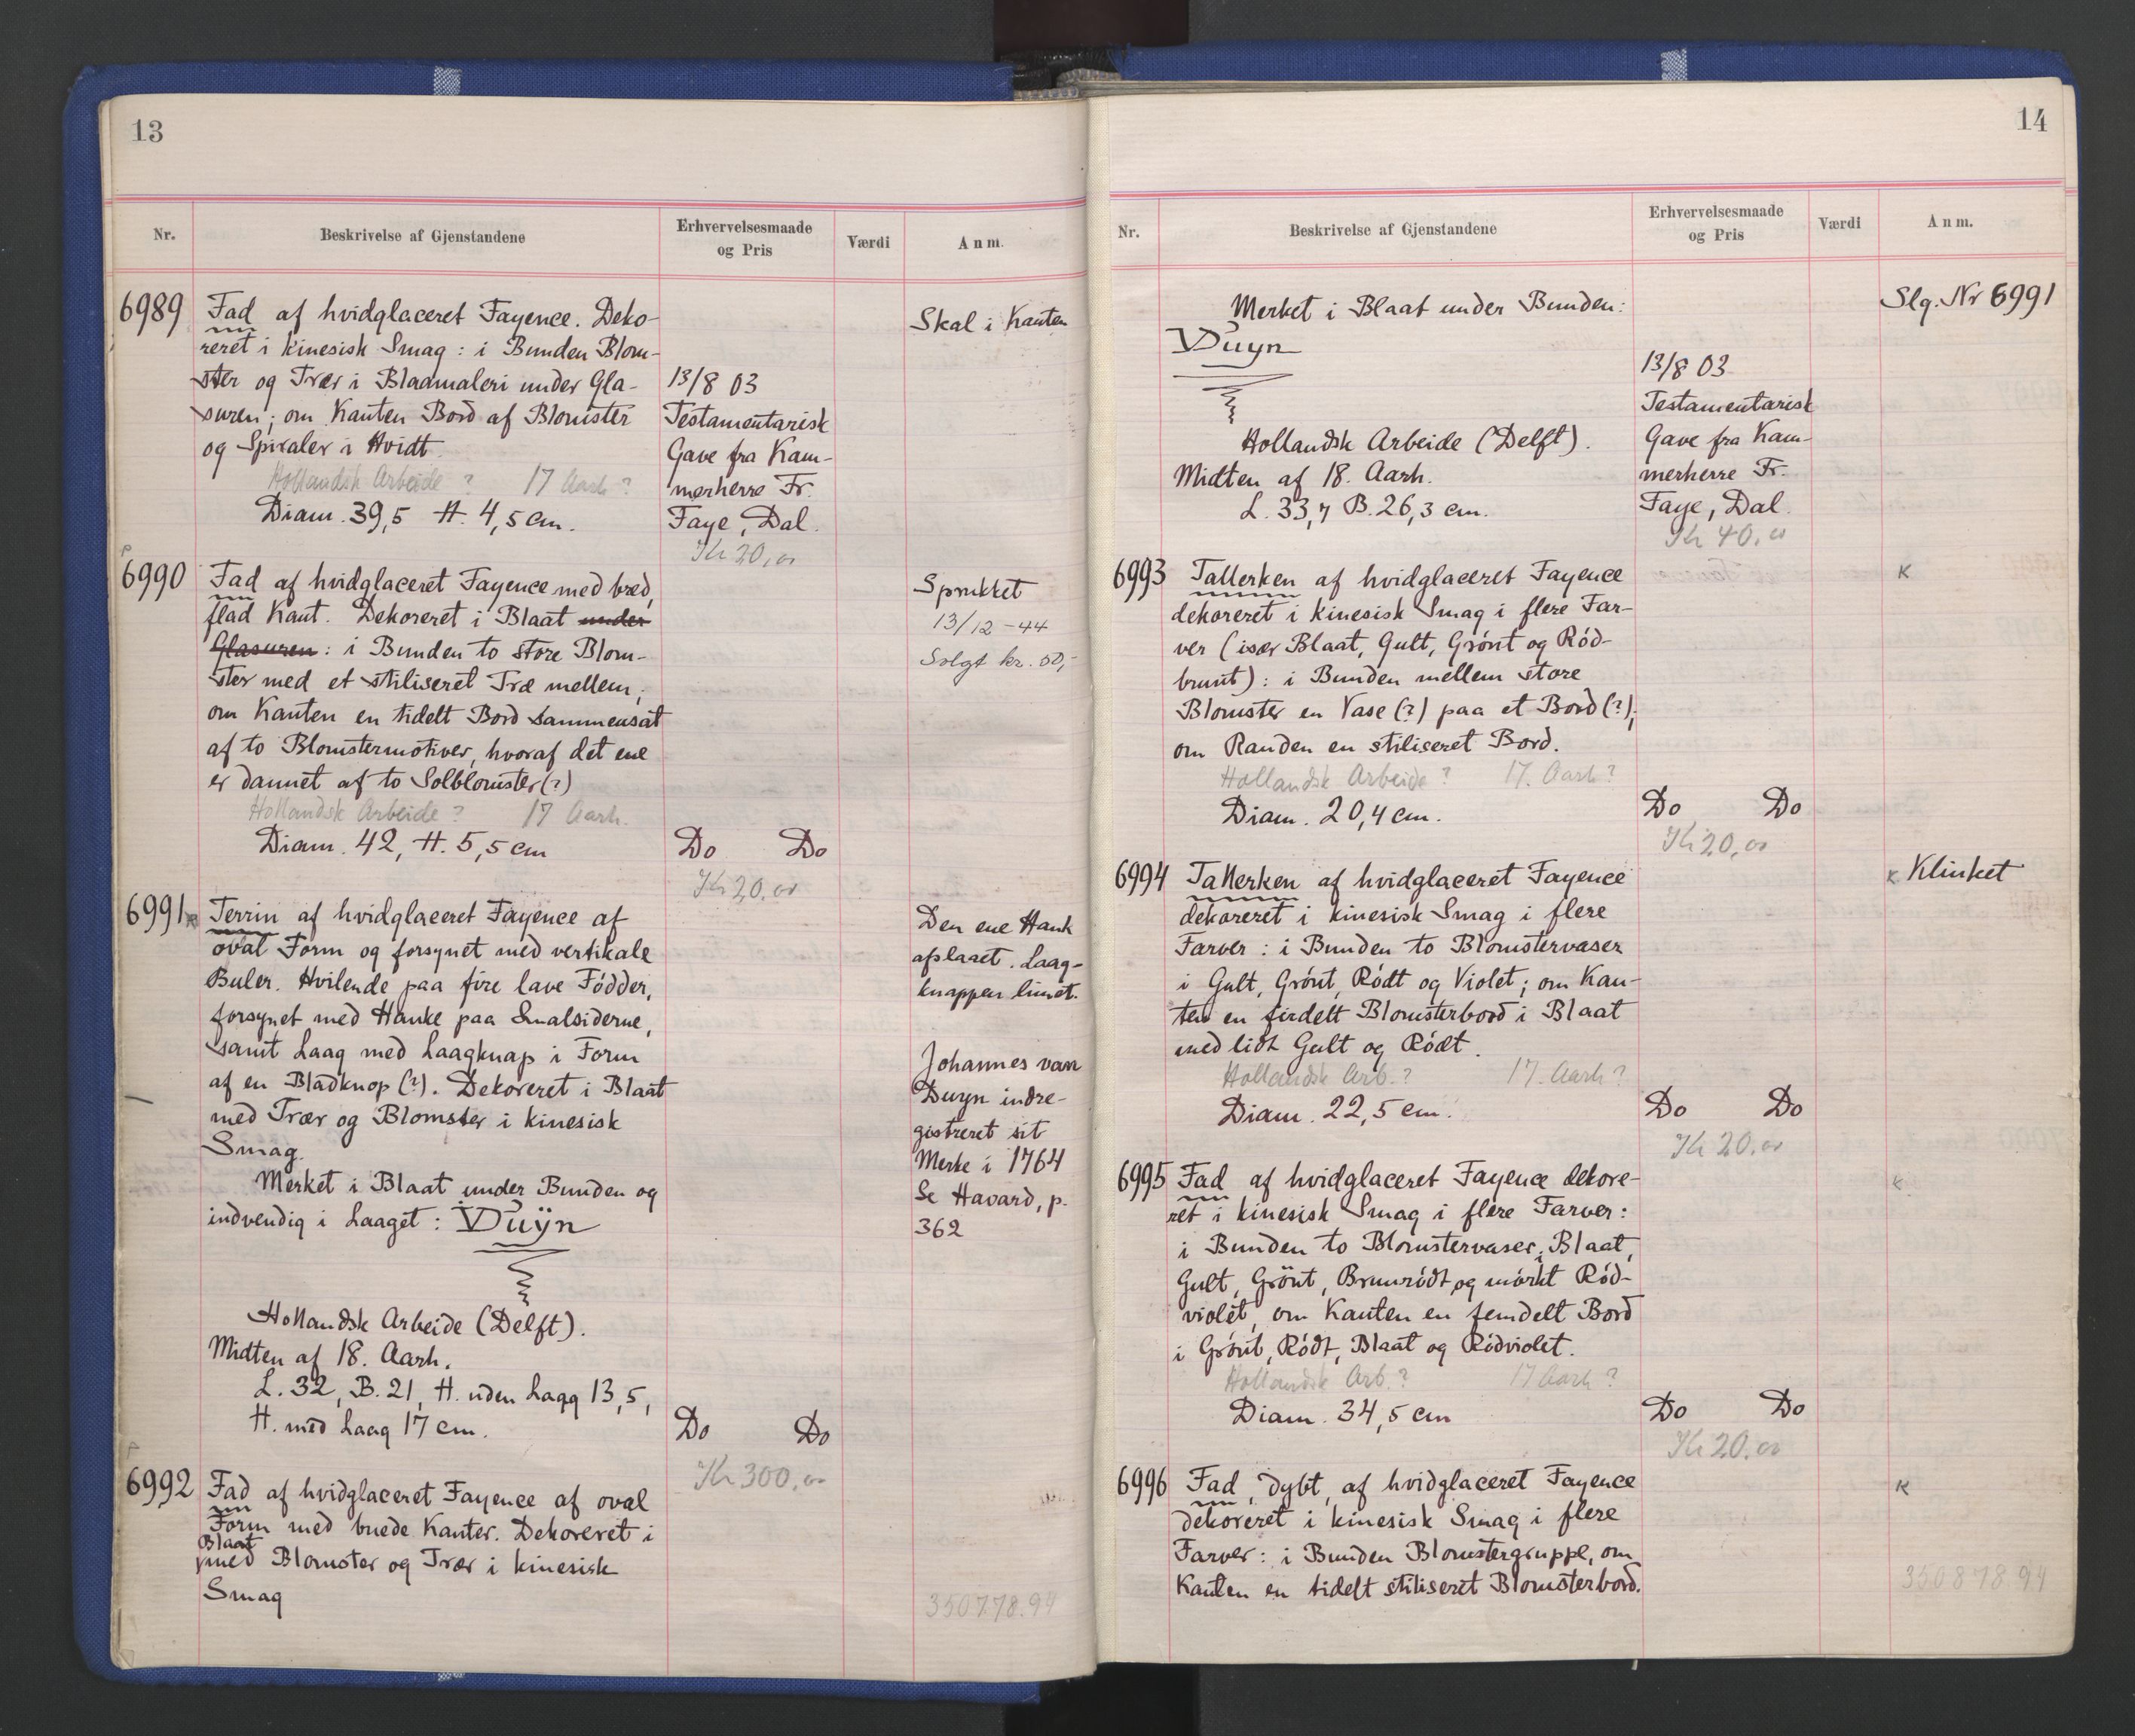 13
Nr.
Beskrivelse af Gjenstandene
Erhvervelsesmaade
og Pris
Værdi
Anm.
6989
Fad af hvidglaceret Fayence. Deko-
reret i kinesisk Smag: i Bunden Blom-
ster og Trær i Blaamaleri under Gla-
suren; om Kanten Bord af Blomster
og Spiraler i Hvidt.
Hollandsk Arbeide? 17 Aarh?
Diam. 39,5 H. 4,5 cm.
13/8 03
Testamentarisk
Gave fra Kam-
merherre Fr.
Faye, Dal.
Kr 20,00
Skal i Kanten
6990
Fad af hvidglaceret Fayence med bred,
flad Kant. Dekoreret i Blaat under
Glasuren: i Bunden to store Blom-
ster med et stiliseret Træ mellem;
om Kanten en tidelt Bord sammensat
af to Blomstermotiver, hvoraf det ene
er dannet af to Solblomster(?)
Hollandsk Arbeide? 17 Aarh.
Diam. 42, H. 5,5 cm
Do Do
Kr 20,00
Sprukket
13/12-44
Solgt kr. 50,-
6991
Terrin af hvidglaceret Fayence af
oval Form og forsynet med vertikale
Buler. Hvilende paa fire lave Födder,
forsynet med Hanke paa Smalsiderne,
samt Laag med Laagknap i Form
af en Bladknop(?). Dekoreret i Blaat
med Trær og Blomster i kinesisk
Smag.
Merket i Blaat under Bunden og
indvendig i Laaget: Duÿn
Hollandsk Arbeide (Delft).
Midten af 18. Aarh.
L. 32, B. 21, H. uden Lagg 13,5,
H. med Laag 17 cm.
Do Do
Kr 300,00
Den ene Hank
afslaaet. Laag-
knappen limet.
Johannes van
Duyn indre-
gistreret sit
Merke i 1764
Se Havard, p.
362
6992
Fad af hvidglaceret Fayence af oval
Form med buede Kanter. Dekoreret i
Blaat
med Blomster og Trær i kinesisk
Smag
350778.94
14
Nr.
Beskrivelse af Gjenstandene
Erhvervelsesmaade
og Pris
Værdi
Anm.
Slg. Nr 6991
Merket i Blaat under Bunden:
Duyn
Hollandsk Arbeide (Delft).
Midten af 18. Aarh.
L. 33,7 B. 26,3 cm.
13/8 03
Testamentarisk
Gave fra Kam-
merherre Fr.
Faye, Dal.
Kr 40,00
6993
Tallerken af hvidglaceret Fayence
dekoreret i kinesisk Smag i flere Far-
ver (især Blaat, Gult, Grönt og Röd-
brunt): i Bunden mellem store
Blomster en Vase(?) paa et Bord(?);
om Randen en stiliseret Bord.
Hollandsk Arbeide? 17. Aarh?
Diam. 20,4 cm.
Do Do
Kr 20,00
K
6994
Tallerken af hvidglaceret Fayence
dekoreret i kinesisk Smag i flere
Farver: i Bunden to Blomstervaser
i Gult, Grönt, Rödt og Violet; om Kan-
ten en firdelt Blomsterbord i Blaat
med lidt Gult og Rödt.
Hollandsk Arb.? 17. Aarh?
Diam. 22,5 cm.
Do Do
Kr 20,00
K Klinket
6995
Fad af hvidglaceret Fayence dekore-
ret i kinesisk Smag i flere Farver:
i Bunden to Blomstervaser i Blaat,
Gult, Grönt, Brunrödt og mörkt Röd-
violet, om Kanten en femdelt Bord
i Grönt, Rödt, Blaat og Rödviolet.
Hollandsk Arb.? 17 Aarh?
Diam. 34,5 cm
Do Do
Kr 20,00
K
6996
Fad, dybt, af hvidglaceret Fayence
dekoreret i kinesisk Smag i flere
Farver: i Bunden Blomstergruppe, om
Kanten en tidelt stiliseret Blomsterbord.
K
350878.94